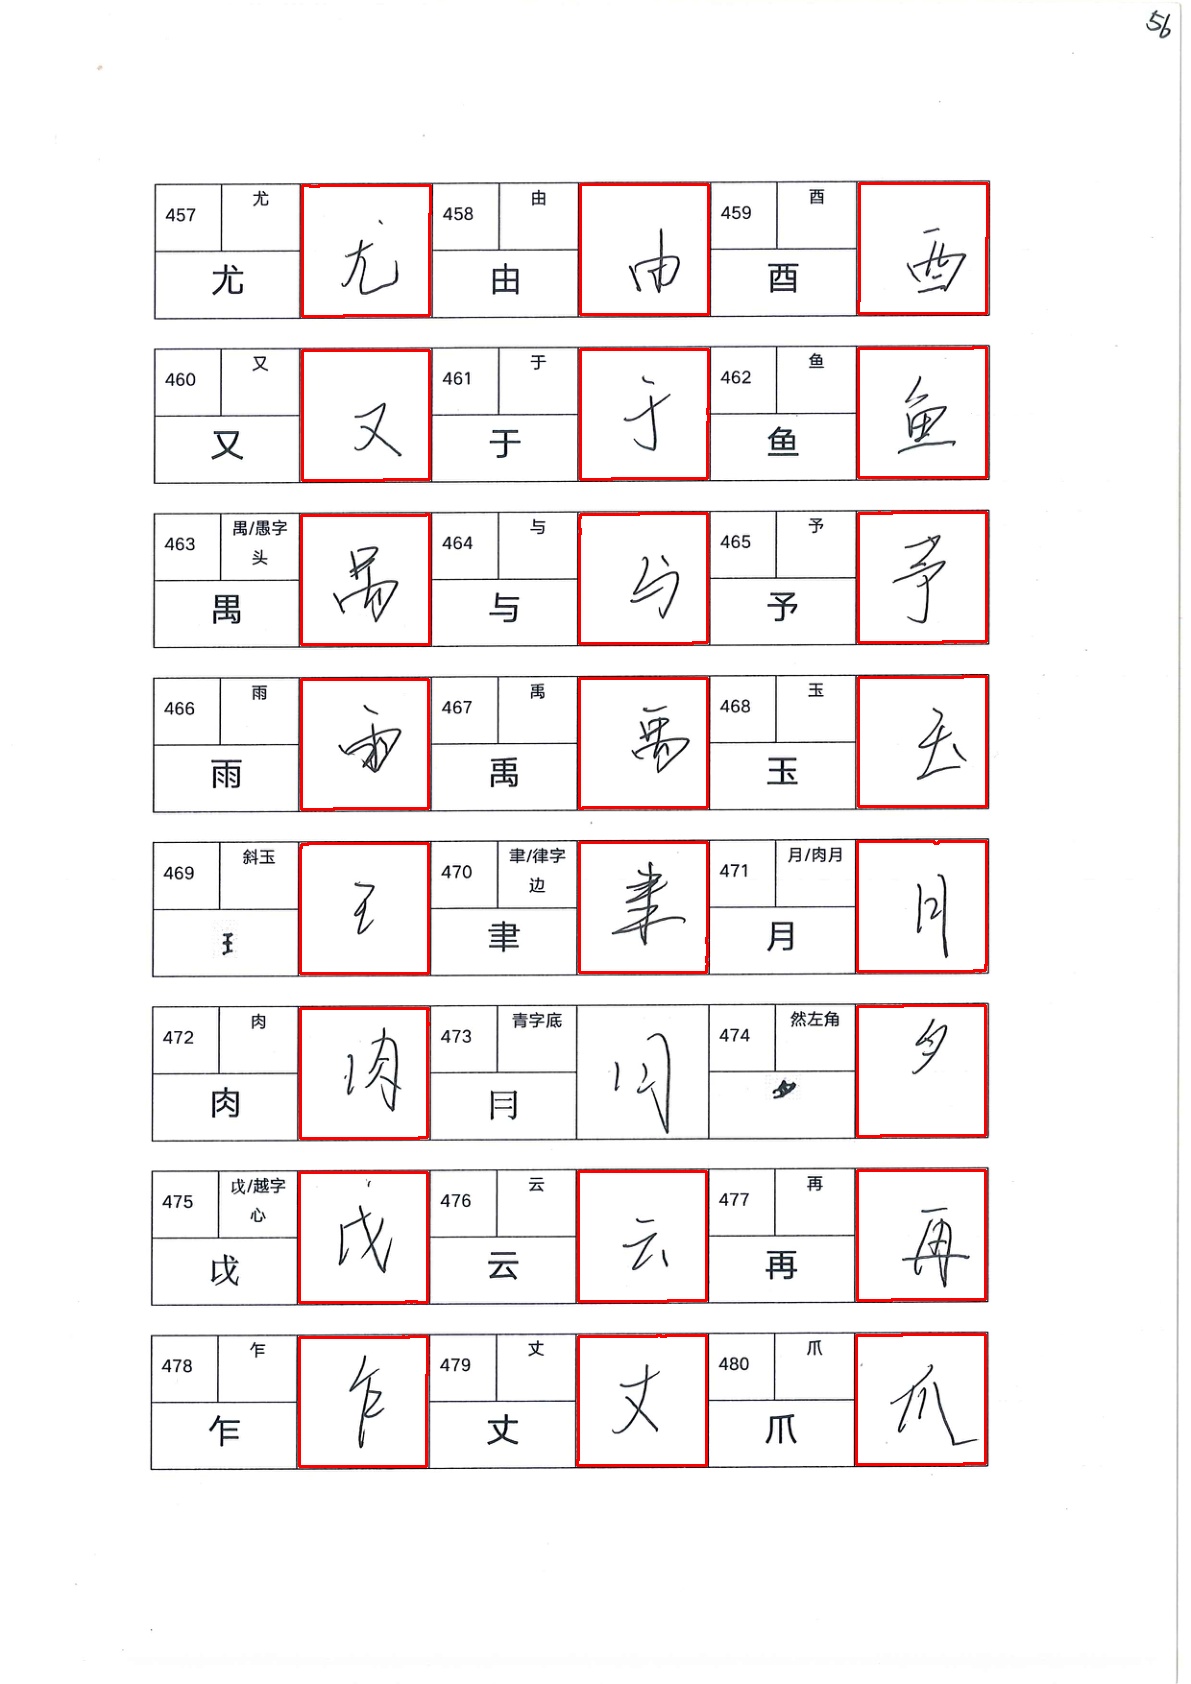 56
457 尤 尤 458 由 由 459 酉 酉
尤 由 酉
460 又 又 461 于 于 462 鱼 鱼
又 于 鱼
463 禺/愚字头 禺 464 与 与 465 予 予
禺 与 予
466 雨 雨 467 禹 禹 468 玉 玉
雨 禹 玉
469 斜玉 王 470 聿/律字边 聿 471 月/肉月 月
𤣩 聿 月
472 肉 肉 473 青字底 円 474 然左角 夕
肉 円
475 戉/越字心 戉 476 云 云 477 再 再
戉 云 再
478 乍 乍 479 丈 丈 480 爪 爪
乍 丈 爪